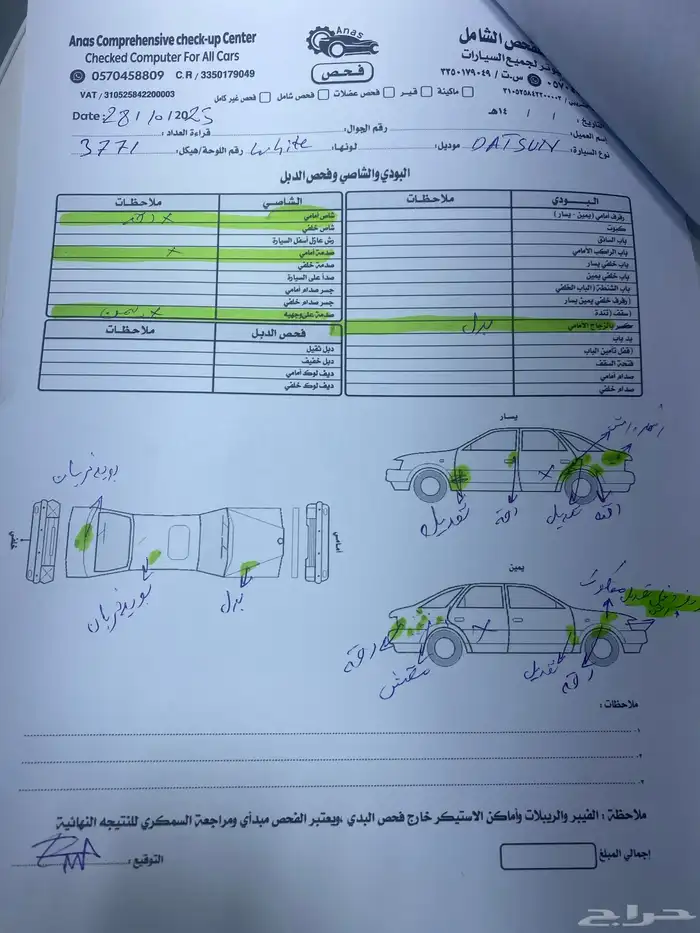 Anas Comprehensive check-up Center
Checked Computer For All Cars
0570458809 C.R / 3350179049
VAT / 310525842200003
Anas
فحص
الفحص الشامل
لجميع السيارات
س.ت / ٣٣٥٠١٧٩٠٤٩
ماكينة
قير
فحص عضلات
فحص شامل
فحص غير كامل
Date: 28/10/2025
التاريخ: / / ١٤هـ
إسم العميل:
رقم الجوال:
قراءة العداد:
نوع السيارة: DATSUN موديل: لونها: white رقم اللوحة/هيكل: 3771
البودي والشاصي وفحص الدبل
البـــودي
ملاحظات
رفرف أمامي (يمين - يسار)
كبوت
باب السائق
باب الراكب الأمامي
باب خلفي يسار
باب خلفي يمين
باب الشنطة (الباب الخلفي)
(رفرف خلفي يمين يسار)
(سقف) تندة
كسر بالزجاج الأمامي بدل
يد باب
(قفل تأمين الباب
فتحة السقف
صدام أمامي
صدام خلفي
الشاصـي
ملاحظات
شاص أمامي x
شاص خلفي
رش عازل أسفل السيارة
صدمة أمامي x
صدمة خلفي
صدأ على السيارة
جسر صدام أمامي
جسر صدام خلفي
صدمة على وجهية x
فحص الدبل
ملاحظات
دبل ثقيل
دبل خفيف
ديف لوك أمامي
ديف لوك خلفي
يسار
تعديل
دقه
تعديل
دقه
بوديه خربان
خلفي
أمامي
بوديه خربان
بدل
يمين
دقه
مقش
تعديل
دقه
ملاحظات :
١-
٢-
٣-
ملاحظة : الفيبر والريبلات وأماكن الاستيكر خارج فحص البدي ،ويعتبر الفحص مبدأي ومراجعة السمكري للنتيجه النهائية
إجمالي المبلغ
التوقيع:
حراج